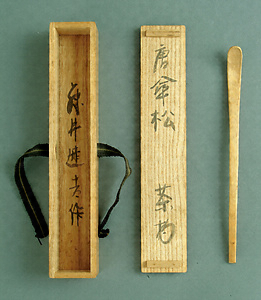 唐傘松 茶杓
井 吉作